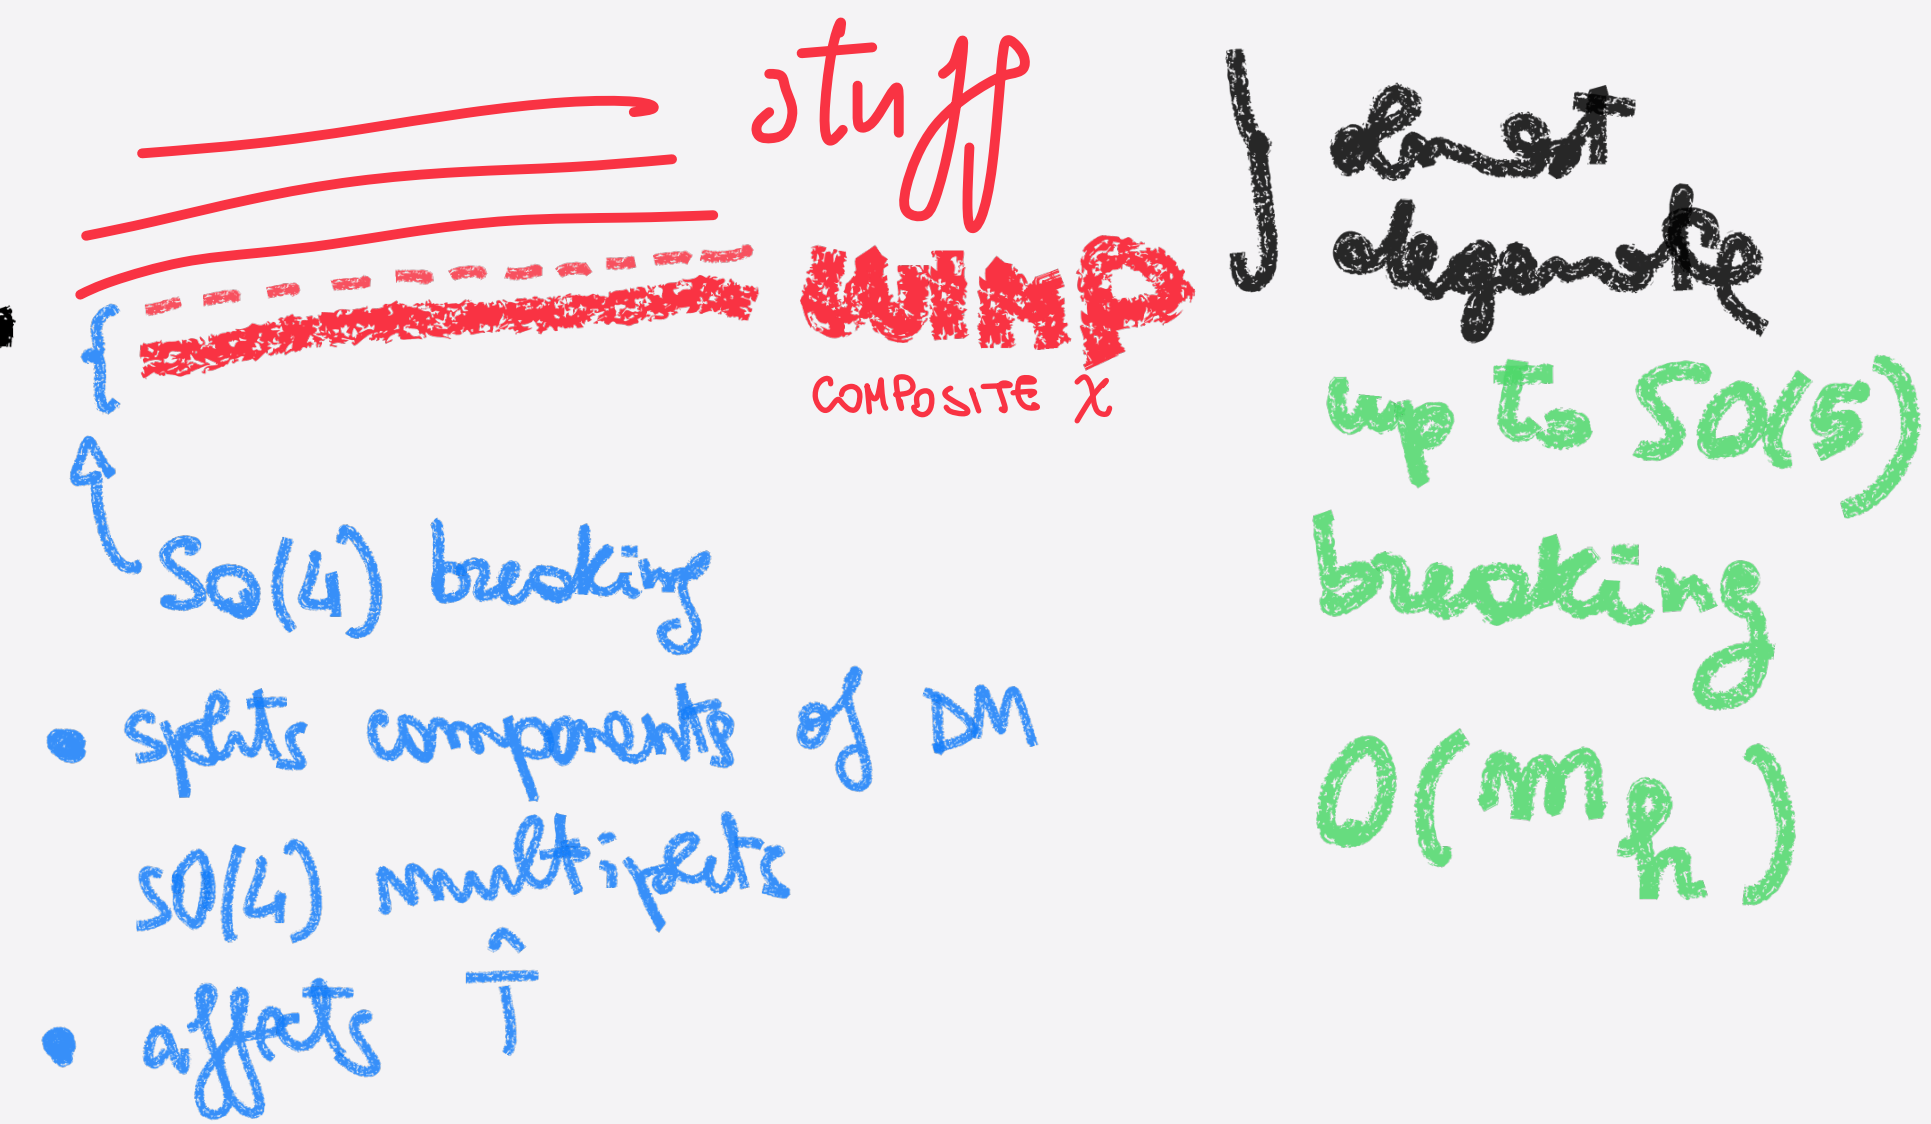 stuff
WIMP
COMPOSITE χ
almost
degenerate
up to SO(5)
breaking
O(m_h)
SO(4) breaking
• splits components of DM
SO(4) multiplets
• affects T̂